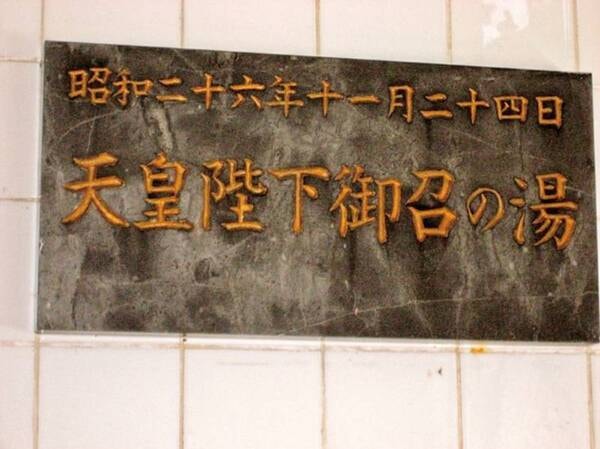 昭和二十六年十一月二十四日
天皇陛下御召の湯